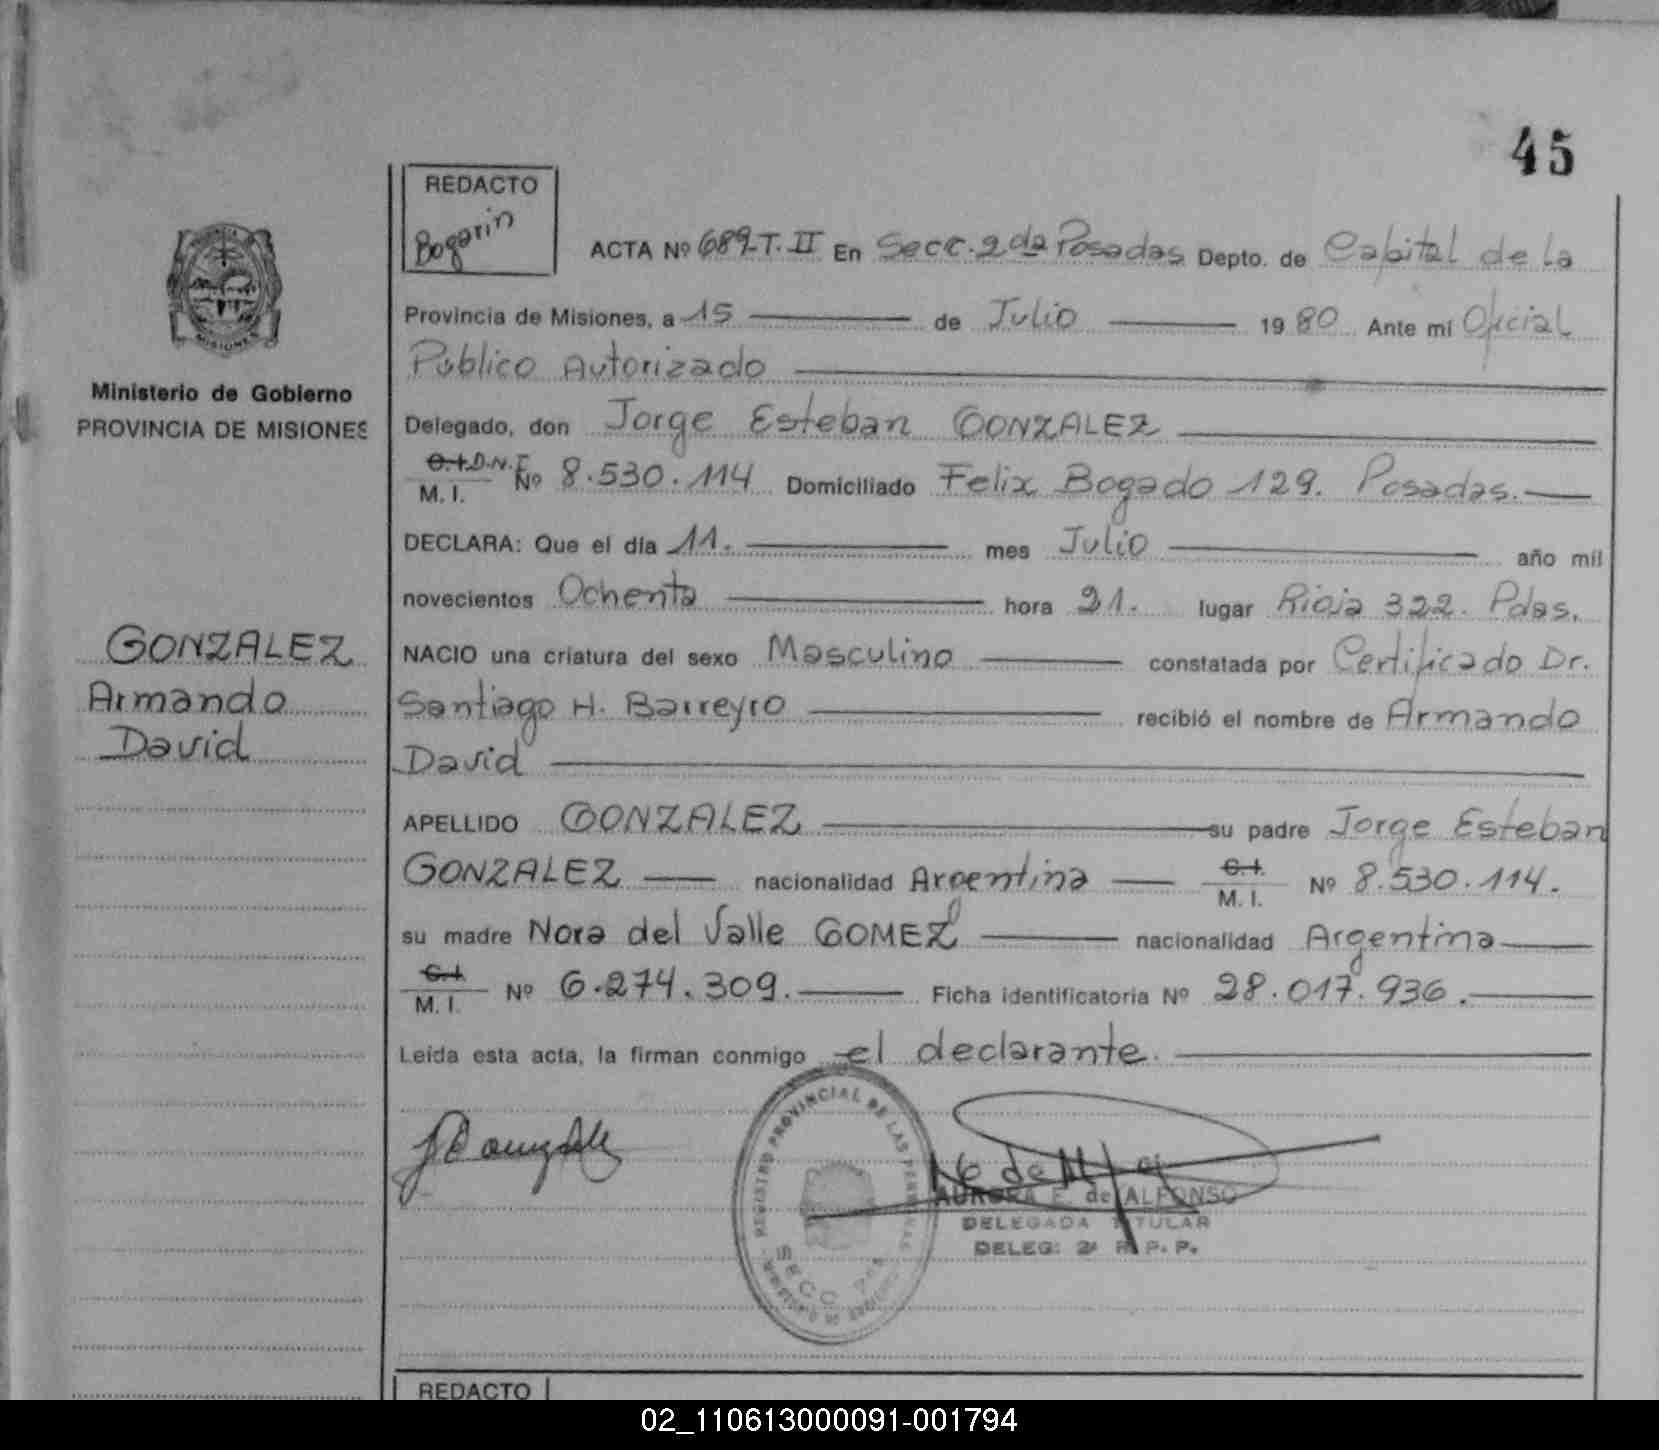 45
REDACTO
Bogarin
ACTA Nº 689-T. II En Secc. 2da Posadas Depto. de Capital de la
Provincia de Misiones, a 15 de Julio 1980 Ante mi Oficial
Público Autorizado
MISIONES
Ministerio de Gobierno
PROVINCIA DE MISIONES
Delegado, don Jorge Esteban GONZALEZ
C.I. D.N.I.
M. I. Nº 8.530.114 Domiciliado Felix Bogado 129. Posadas.
DECLARA: Que el día 11. mes Julio año mil
novecientos Ochenta hora 21. lugar Rioja 322. Pdas.
GONZALEZ
Armando
David
NACIO una criatura del sexo Masculino constatada por Certificado Dr.
Santiago H. Barreyro recibió el nombre de Armando
David
APELLIDO GONZALEZ su padre Jorge Esteban
GONZALEZ nacionalidad Argentina C.I. M. I. Nº 8.530.114.
su madre Nora del Valle GOMEZ nacionalidad Argentina
C.I. M. I. Nº 6.274.309. Ficha identificatoria Nº 28.017.936.
Leída esta acta, la firman conmigo el declarante.
REGISTRO PROVINCIAL DE LAS PERSONAS
SECC. 2da
AURORA E. de ALFONSO
DELEGADA TITULAR
DELEG: 2ª R. P. P.
REDACTO
02_110613000091-001794